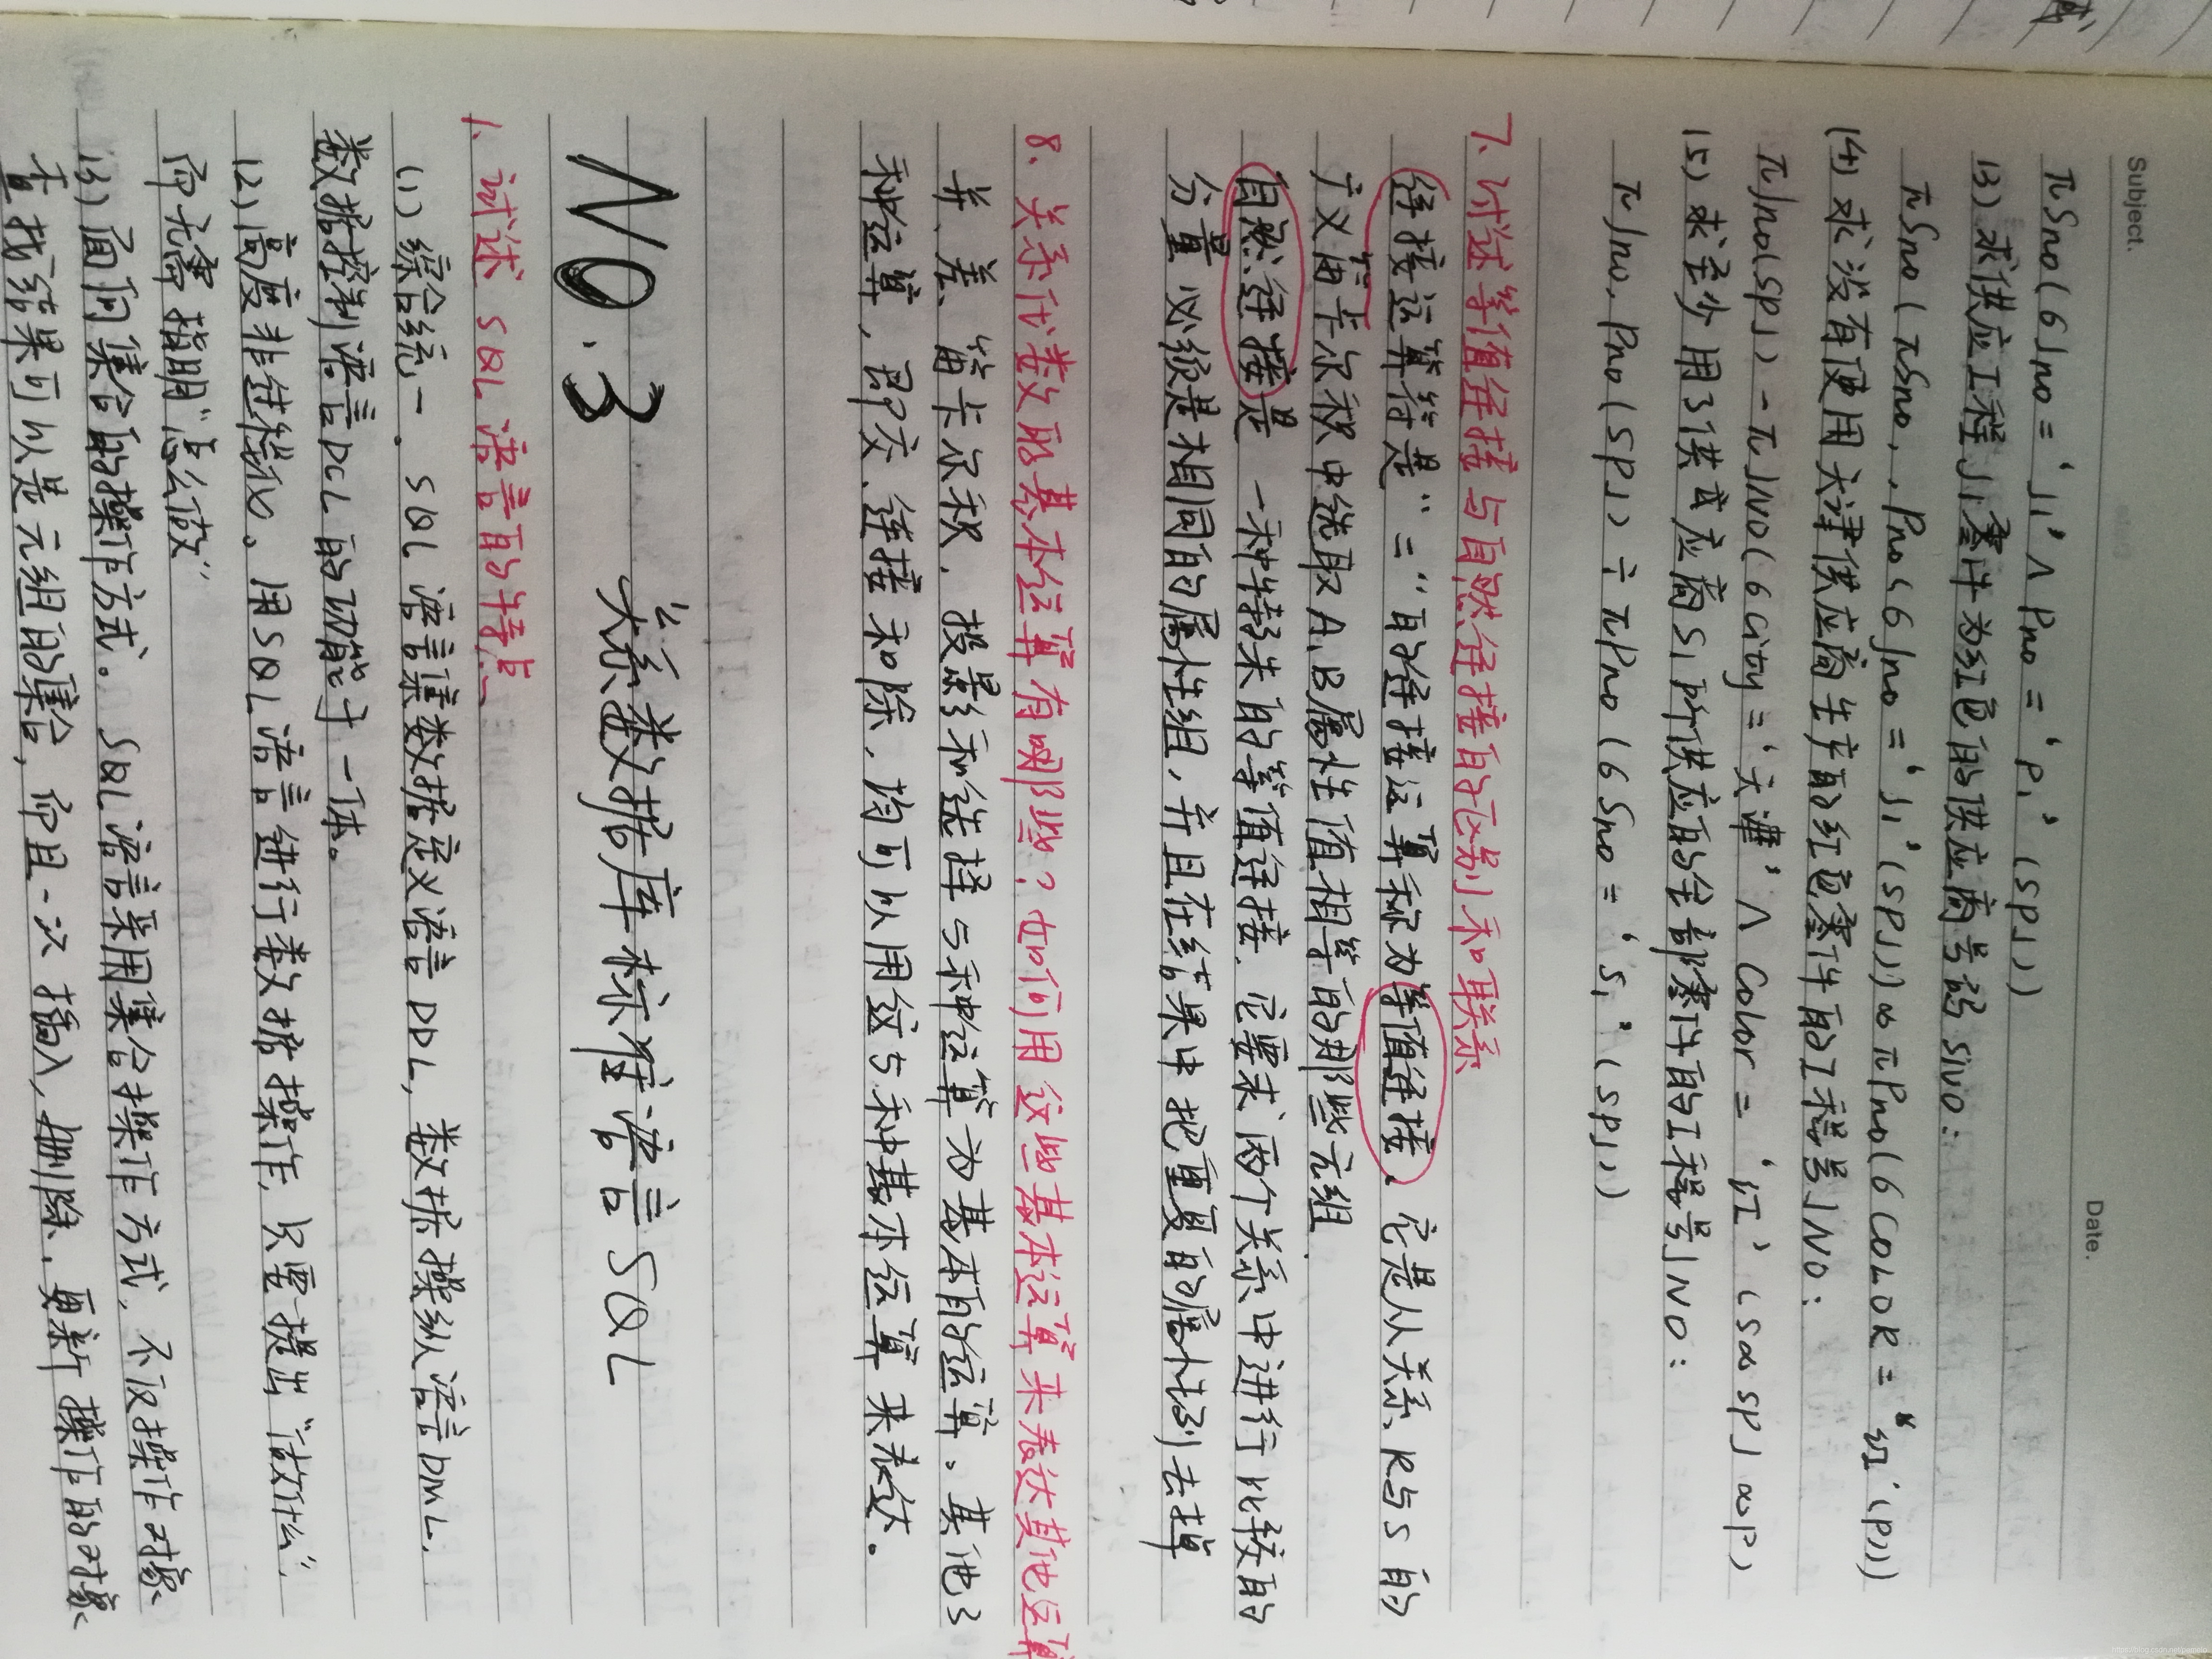 Subject.
Date.
πSno(6Jno='J1'∧Pno='P1'(SPJ))
(3)求供应工程J1零件为红色的供应商号码SNO:
πSno(πSno,,Pno(6Jno='J1'(SPJ))∞πPno(6COLOR="红'(P)))
(4)求没有使用天津供应商生产的红色零件的工程号JNO:
πJno(SPJ)-πJNO(6City='天津'∧Color='红'(S∞SPJ∞P)
(5)求至少用了供或应商S1所供应的全部零件的工程号JNO:
πJno,Pno(SPJ)÷πPno(6Sno='S1'(SPJ))
7.讨述等值连接与自然连接的区别和联系
连接运算符是"="的连接运算称为等值连接.它是从关系R与S的
广义笛卡尔积中选取A,B属性值相等的那些元组.
自然连接是一种特殊的等值连接.它要求两个关系中进行比较的
分量必须是相同的属性组,并且在结果中把重复的属性列去掉
8.关系代数的基本运算有哪些?如何用这些基本运算来表达其他运算
并、差、笛卡尔积、投影和选择5种运算为基本的运算。其他3
种运算,即交、连接和除,均可以用这5种基本运算来表达。
NO.3 关系数据库标准语言SQL
1.试述SQL语言的特点
(1)综合统一。SQL语言集数据定义语言DDL,数据操纵语言DML,
数据控制语言DCL的功能于一体。
(2)高度非进统化。用SQL语言进行数据操作,只要提出"做什么"
而无需指明"怎么做"
(3)面向集合的操作方式。SQL语言采用集合操作方式,不仅操作对象
查找结果可以是元组的集合,而且一次插入,删除,更新操作的对象
https://blog.csdn.net/